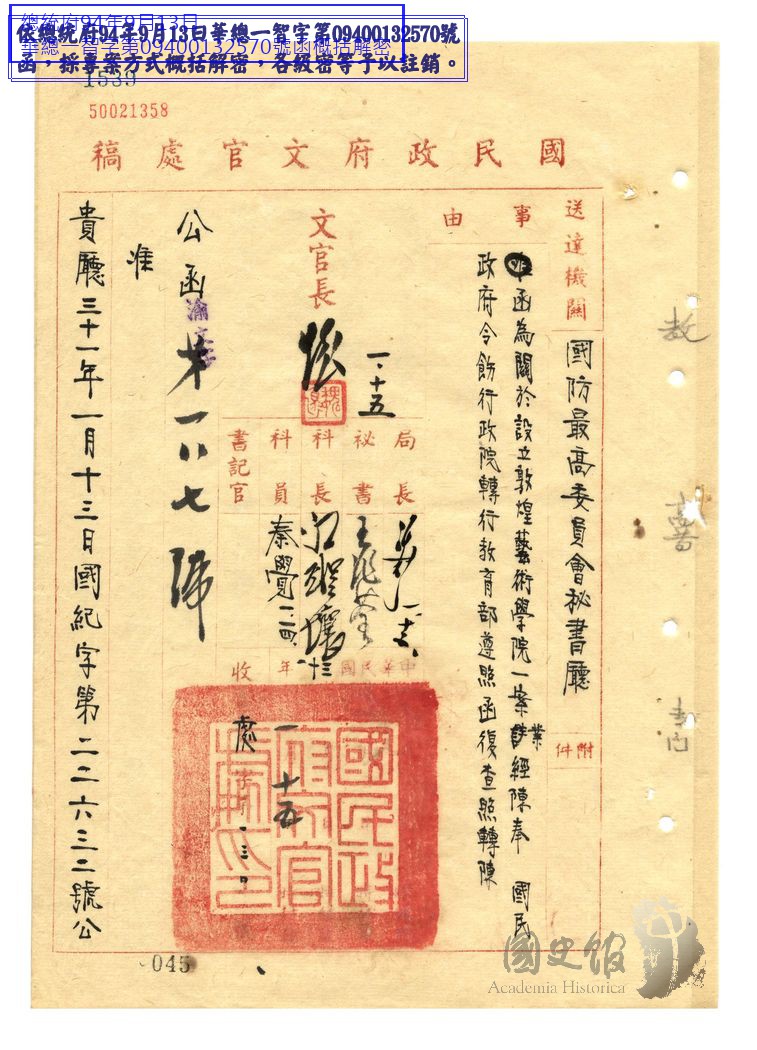 總統府94年9月13日
華總一智字第09400132570號函概括解密
依總統府94年9月13日華總一智字第09400132570號
函，採專案方式概括解密，各級密等予以註銷。
1539
50021358
國民政府文官處稿
送達機關
國防最高委員會祕書廳
附件
事由
函為關於設立敦煌藝術學院一案業經陳奉 國民
政府令飭行政院轉行教育部遵照函復查照轉陳
文官長
魏
一、十五
局長
祕書
科長
科員
秦覺
一、二四
書記官
中華民國
三十一
年
一
十五
收
處
國民政府文官處印
公函
渝文字
第一八七號
准
貴廳三十一年一月十三日國紀字第二二六三二號公
045
國史館
Academia Historica